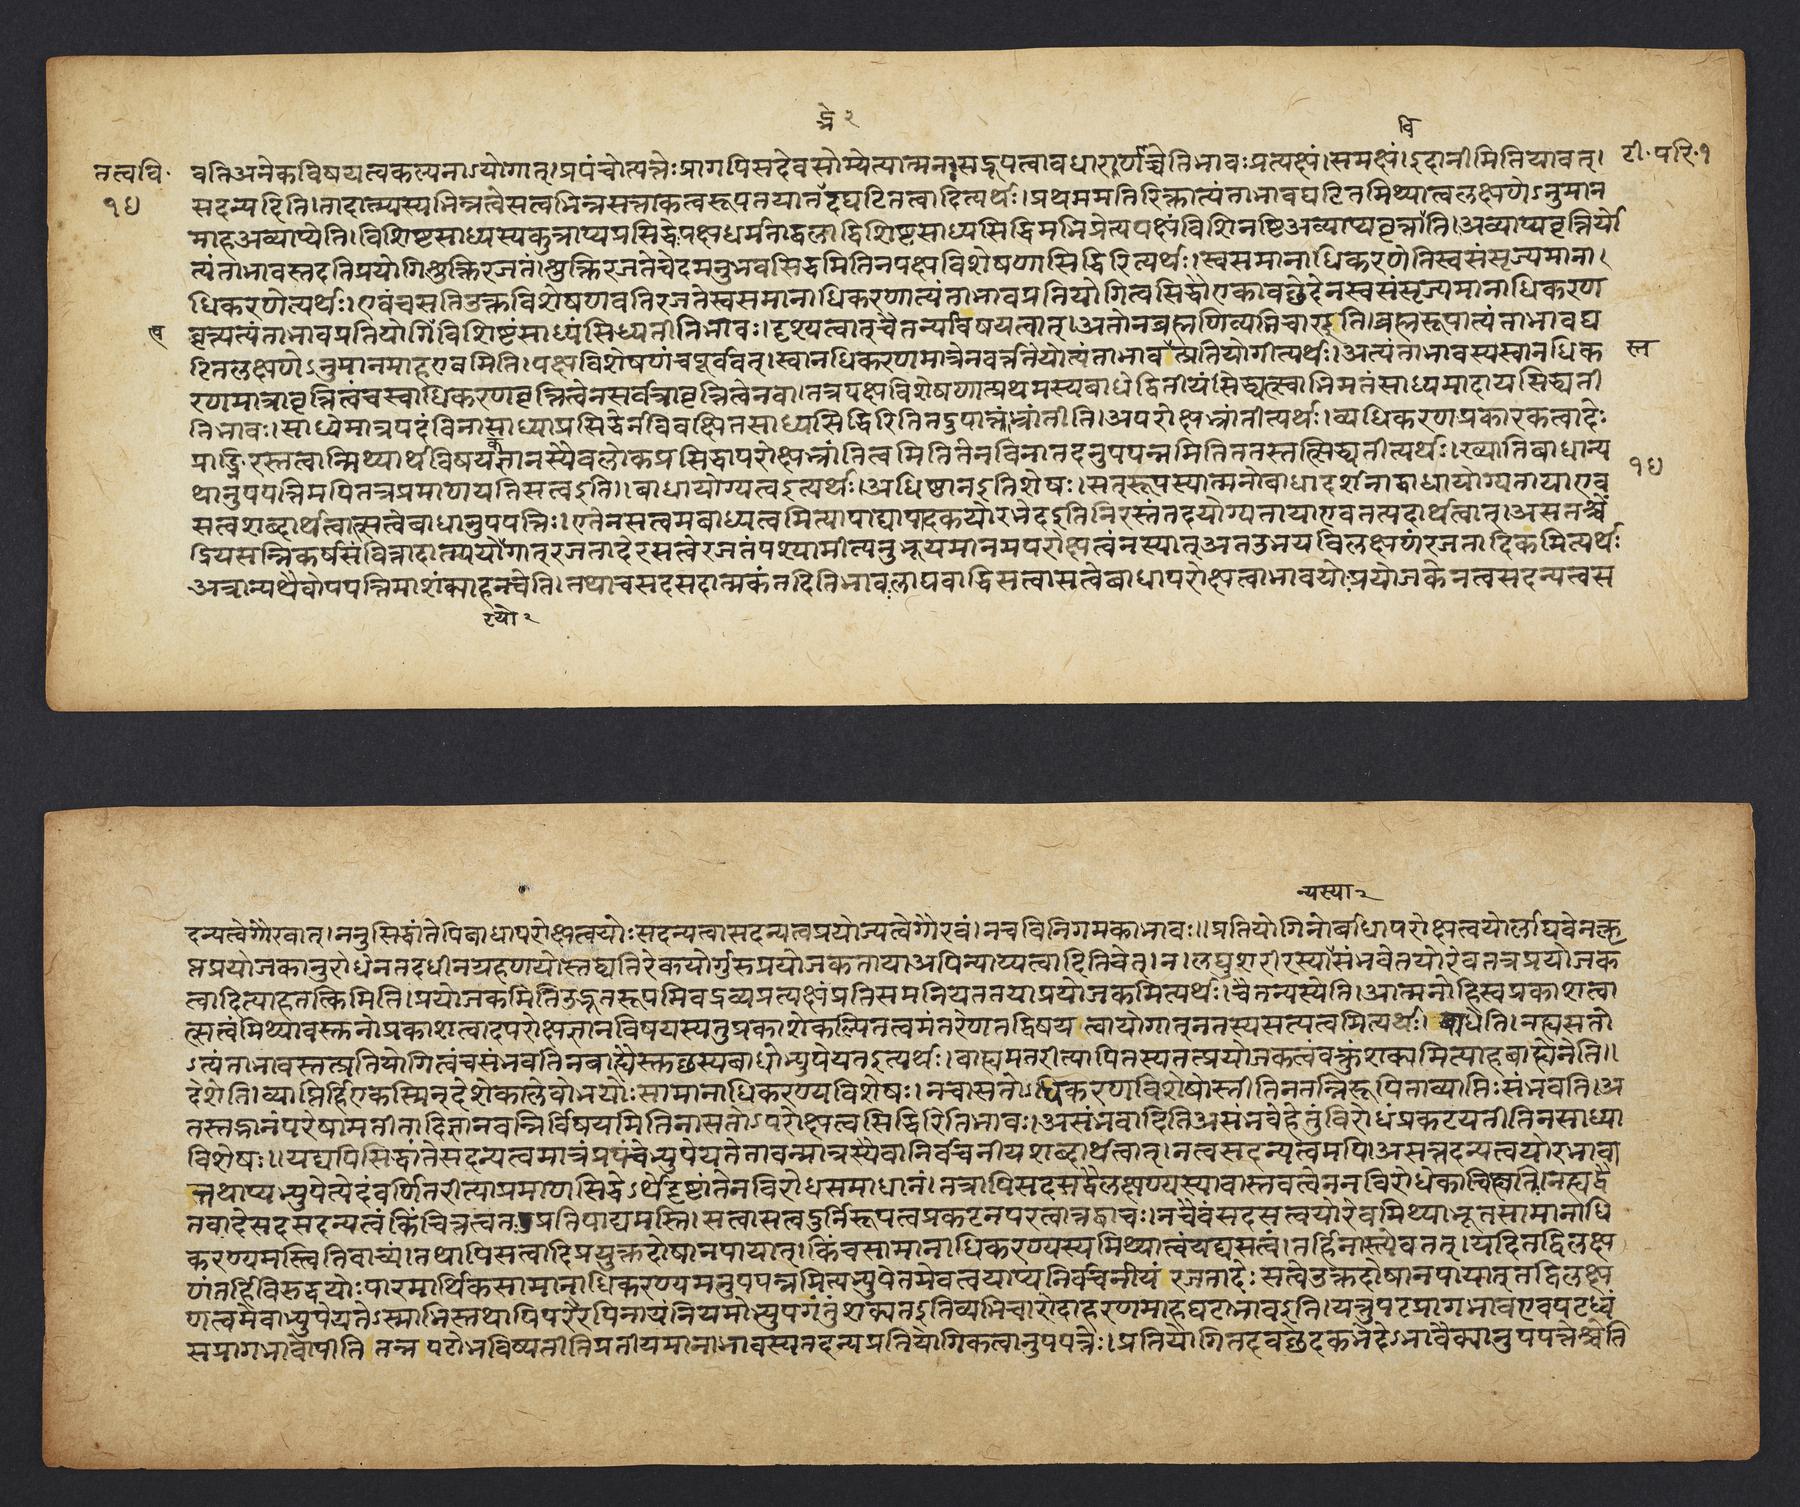 द्ये २
वि
तत्ववि॰ वति अनेकविषयत्वकल्पनाऽयोगात्। प्रपंचोत्पत्तेः प्रागपि सदेव सोम्येत्यात्मनः सद्रूपत्वावधारणाच्चेति भावः प्रत्यक्षं। समक्षं। इदानीमिति यावत्। टी॰ परि॰ १
१४ सदन्यदिति। तादात्म्यस्य भिन्नत्वे सत्यभिन्नसत्ताकत्वरूपतया तद्घटितत्वादित्यर्थः। प्रथममतिरिक्तात्यंताभावघटितमिथ्यात्वलक्षणेऽनुमान
माह अव्याप्येति। विशिष्टसाध्यस्य कुत्राप्यप्रसिद्धेः पक्षधर्मताबलाद्विशिष्टसाध्यसिद्धिमभिप्रेत्य पक्षं विशिनष्टि अव्याप्यवृत्तीति। अव्याप्यवृत्तिर्यो
त्यंताभावस्तदप्रतियोगि शुक्तिरजतं शुक्तिरजते चेदमनुभवसिद्धमिति न पक्षविशेषणासिद्धिरित्यर्थः। स्वसमानाधिकरणेति स्वसंसृज्यमाना।
धिकरणेत्यर्थः। एवं च सति उक्तविशेषणवति रजते स्वसमानाधिकरणात्यंताभावप्रतियोगित्वसिद्धौ एकावछेदेन स्वसंसृज्यमानाधिकरण
वृत्त्यत्यंताभावप्रतियोगि विशिष्टं साध्यं सिध्यतीति भावः। दृश्यत्वात् चैतन्यविषयत्वात्। अतो न ब्रह्मणि व्यभिचार इति। ब्रह्मरूपात्यंताभावघ
टितलक्षणेऽनुमानमाह एवमिति। पक्षविशेषणं च पूर्ववत्। स्वानधिकरणमात्रे न वर्त्तते योत्यंताभावः तत्प्रतियोगीत्यर्थः। अत्यंताभावस्य स्वानधिक ल
रणमात्रावृत्तित्वं च स्वाधिकरणवृत्तित्वेन सर्वत्रावृत्तित्वेन वा। तत्र पक्षविशेषणात्प्रथमस्य बाधे द्वितीयं सिद्ध्यत्स्वाभिमतं साध्यमादाय सिद्ध्यती
ति भावः। साध्ये मात्रपदं विना साध्याप्रसिद्धेर्न विवक्षितसाध्यसिद्धिरिति तदुपात्तं भ्रांतीति। अपरोक्षभ्रांतीत्यर्थः। व्यधिकरणप्रकारकत्वादेः
प्राङ्निरस्तत्वान्मिथ्यार्थविषयकज्ञानस्यैव लोकप्रसिद्धापरोक्षभ्रांतित्वमिति तेन विना तदनुपपन्नमिति ततस्तत्सिद्ध्यतीत्यर्थः। ख्यातिबाधान्य
थानुपपत्तिमपि तत्र प्रमाणयति सत्व इति। बाधायोग्यत्व इत्यर्थः। अधिष्ठान इति शेषः। सत्रूपस्यात्मनो बाधादर्शनाद्बाधायोग्यताया एव १४
सत्वशब्दार्थत्वात्सत्वे बाधानुपपत्तिः। एतेन सत्वमबाध्यत्वमित्यापाद्यापादकयोरभेद इति निरस्तं तदयोग्यताया एव तत्पदार्थत्वात्। असतश्चें
द्रियसन्निकर्षसंवित्तादात्म्ययोगात् रजतादेरसत्वे रजतं पश्यामीत्यनुभूयमानमपरोक्षत्वं न स्यात् अत उभयविलक्षणं रजतादिकमित्यर्थः
अत्रान्यथैवोपपत्तिमाशंक्याह न चेति। तथा च सदसदात्मकं तदिति भावः लाघवाद्धि सत्वासत्वे बाधापरोक्षत्वाभावयोः प्रयोजके न त्वसदन्यत्वस
रयो २
न्यस्या २
दन्यत्वे गौरवात्। ननु सिद्धांतेपि बाधापरोक्षत्वयोः सदन्यत्वासदन्यत्वप्रयोज्यत्वे गौरवं। न च विनिगमकाभावः॥ प्रतियोगिनोर्बाधापरोक्षत्वयोर्लाघवेन क्लृ
प्तप्रयोजकानुरोधेन तदधीनग्रहणयोस्तद्व्यतिरेकयोर्गुरुप्रयोजकताया अपि न्याय्यत्वादिति चेत्। न। लघुशरीरस्या संभवे तयोरेव तत्र प्रयोजक
त्वादित्याह तत्किमिति। प्रयोजकमिति उद्भूतरूपमिव द्रव्यप्रत्यक्षं प्रति समनियततया प्रयोजकमित्यर्थः। चैतन्यस्येति। आत्मनो हि स्वप्रकाशत्वा
त्सत्वं मिथ्यावस्तुनो प्रकाशत्वादपरोक्षज्ञानविषयस्य तु प्रकाशे कल्पितत्वमंतरेण तद्विषयत्वायोगात् न तस्य सत्यत्वमित्यर्थः। बाधेति। न ह्यसतो
ऽत्यंताभावस्तत्प्रतियोगित्वं च संभवति न वा ह्येस्तुछस्य बाधोभ्युपेयत इत्यर्थः। बाह्यमतरीत्यापि तस्य तत्प्रयोजकत्वं वक्तुं शक्यमित्याह बाह्येनेति॥
देशेति। व्याप्तिर्हि एकस्मिन् देशे काले वोभयोः सामानाधिकरण्यविशेषः। न चासतोऽधिकरणविशेषोस्तीति न तन्निरूपिता व्याप्तिः संभवति। अ
तस्तज्ज्ञानं परेषामतीतादिज्ञानवन्निर्विषयमिति नासतोऽपरोक्षत्वसिद्धिरिति भावः। असंभवादिति असंभवे हेतुं विरोधं प्रकटयतीति न साध्या
विशेषः॥ यद्यपि सिद्धांते सदन्यत्वमात्रं प्रपंचेभ्युपेयते तावन्मात्रस्यैवानिर्वचनीयशब्दार्थत्वात्। न त्वसदन्यत्वमपि। असत्तदन्यत्वयोरभावा
त्तथाप्यभ्युपेत्येदं वर्णितरीत्या प्रमाणसिद्धेऽर्थे दृष्टांतेन विरोधसमाधानं। तत्रापि सदसद्वैलक्षण्यस्यावास्तवत्वेन न विरोधे काचित्क्षतिः। न ह्यद्वै
तवादे सदसदन्यत्वं किंचित्तत्वतः प्रतिपाद्यमस्ति। सत्वासत्वदुर्निरूपत्वप्रकटनपरत्वात्तद्वाचः। न चैवं सदसत्वयोरेव मिथ्याभूतसामानाधि
करण्यमस्त्विति वाच्यं। तथापि सत्वादिप्रयुक्तदोषानपायात्। किं च सामानाधिकरण्यस्य मिथ्यात्वं यद्यसत्वं। तर्हि नास्त्येव तत्। यदि तद्विलक्ष
णं तर्हि विरुद्धयोः पारमार्थिकसामानाधिकरण्यमनुपपन्नमित्यभ्युपेतमेव त्वयाप्यनिर्वचनीयं रजतादेः सत्वे उक्तदोषानपायात् तद्विलक्ष
णत्वमेवाभ्युपेयतेऽस्माभिस्तथापि परैरपि नायं नियमोभ्युपगंतुं शक्यत इति व्यभिचारोदाहरणमाह घटाभाव इति। यत्तु पटप्रागभाव एव पटध्वं
सप्रागभावोपीति तन्न पटो भविष्यतीति प्रतीयमानाभावस्य तदन्यप्रतियोगिकत्वानुपपत्तेः। प्रतियोगितदवछेदकभेदेऽभावैक्यानुपपत्तेश्चेति